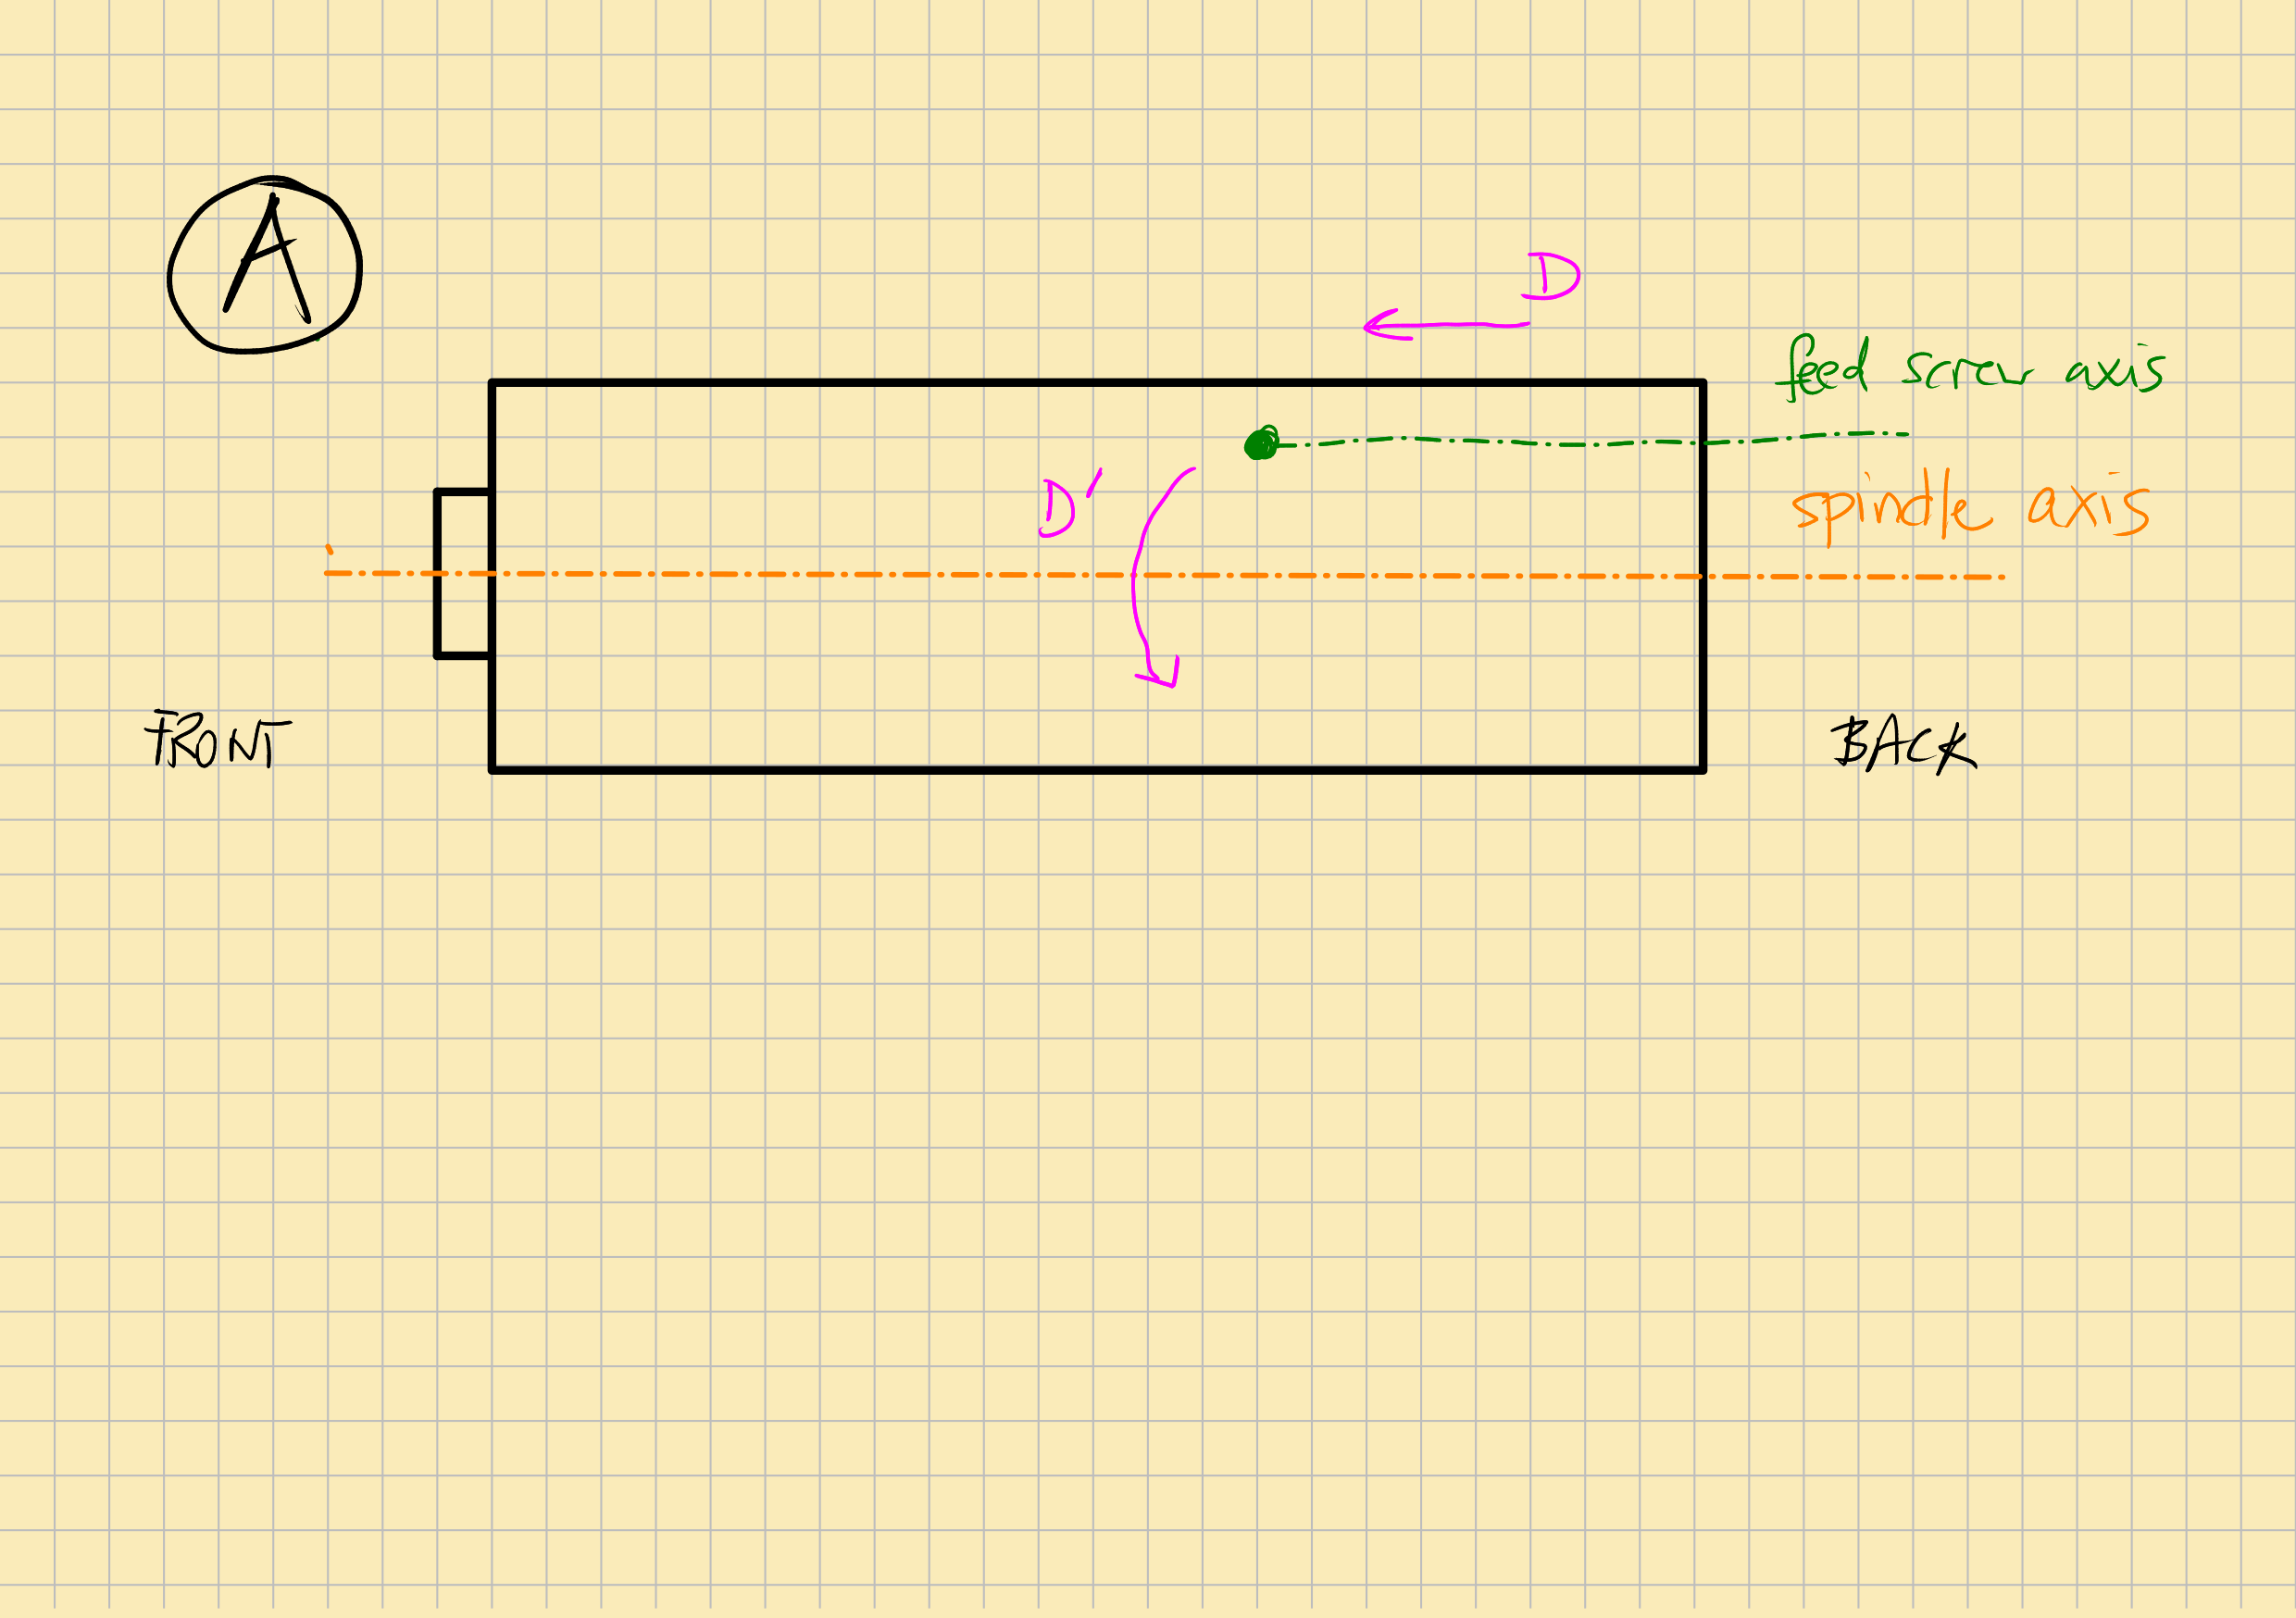 A
D
feed screw axis
D'
spindle axis
FRONT
BACK